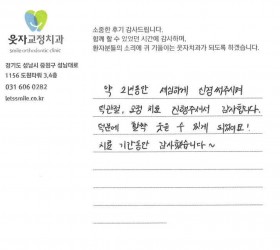 웃자교정치과
smile orthodontic clinic
경기도 성남시 중원구 성남대로
1156 도원타워 3,4층
031 606 0282
letssmile.co.kr
소중한 후기 감사드립니다.
함께 할 수 있었던 시간에 감사하며,
환자분들의 소리에 귀 기울이는 웃자치과가 되도록 하겠습니다.
약 2년동안 세심하게 신경써주시며
턱관절, 교정 치료 진행해주셔서 감사합니다.
덕분에 활짝 웃을 수 있게 되었어요!
치료 기간동안 감사했습니다~